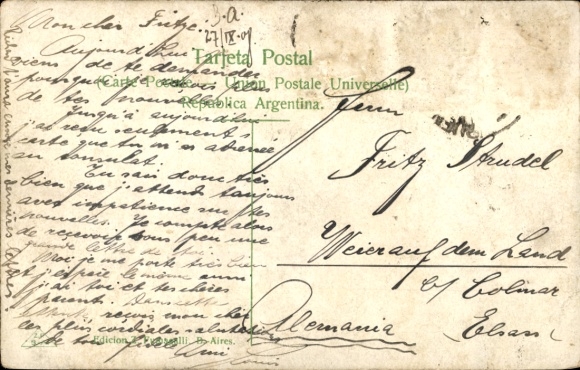 B.A.
27/IX.09
Mon cher Fritz.
Aujourd'hui
viens de te demander
pourquoi
de tes nouvelles
Jusqu'à aujourd'hui
j'ai reçu seulement
carte que tu m'a
au consulat.
Tu sais donc très
bien que j'attend toujours
avec impatience sur tes
nouvelles. Je compte alors
de recevoir sous peu une
grande lettre de toi.
Moi je me porte très bien
et j'espère le même aussi
toi et tes chères
parents. Dans cette
reçois mon cher
les plus cordiales salutations
de ton fidèle Ami
Louis
Tarjeta Postal
(Carte Postale - Union Postale Universelle)
República Argentina.
Herrn
Fritz Strudel
Weier auf dem Land
b/ Colmar
Alemania Elsass
Edicion Z. Fumagalli, B. Aires.